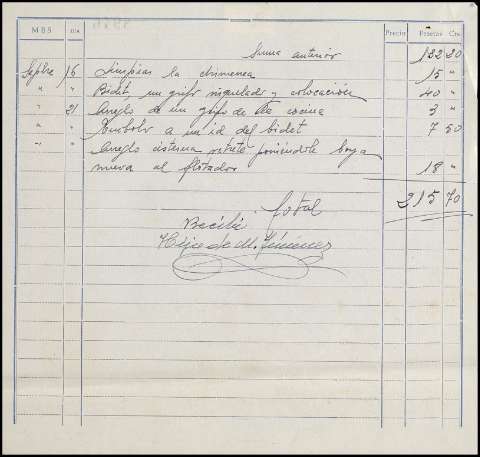 MES DIA Precio Pesetas Cts
Suma anterior 132 20
Sepbre 16 Limpieza la chimenea 15 "
" " Bidet, un grifo niquelado y colocación 40 "
" 21 Arreglo de un grifo de la cocina 3 "
" " a un id. del bidet 7 50
" " Arreglo cisterna retrete poniéndole boya
nueva al flotador 18 "
Total 215 70
Recibí
Hijo de M. Jiménez